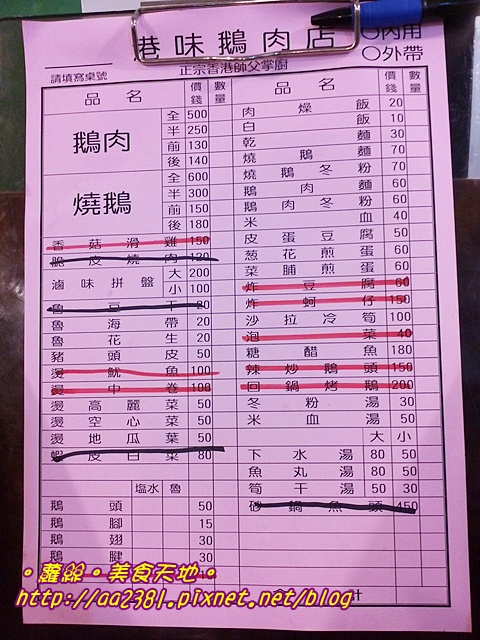 港味鵝肉店
○內用
○外帶
請填寫桌號
正宗香港師父掌廚
品名 價錢 數量
鵝肉 全 500
半 250
前 130
後 140
燒鵝 全 600
半 300
前 150
後 180
香菇滑雞 150
脆皮燒肉 120
滷味拼盤 大 200
小 100
魯豆干 20
魯海帶 20
魯花生 20
豬頭皮 50
燙魷魚 100
燙中卷 100
燙高麗菜 50
燙空心菜 50
燙地瓜葉 50
蝦皮白菜 80
塩水 魯
鵝頭 50
鵝腳 15
鵝翅 30
鵝腱 30
品名 價錢 數量
肉燥飯 20
白飯 10
乾麵 30
燒鵝麵 70
燒鵝冬粉 70
鵝肉麵 60
鵝肉冬粉 60
米血 40
皮蛋豆腐 50
葱花煎蛋 60
菜脯煎蛋 60
炸豆腐 60
炸蚵仔 150
沙拉冷筍 100
泡菜 40
糖醋魚 180
辣炒鵝頭 150
回鍋烤鵝 200
冬粉湯 30
米血湯 50
大 小
下水湯 80 50
魚丸湯 80 50
筍干湯 50 30
砂鍋魚頭 450
計
。蘿絲。美食天地。
http://aa2381.pixnet.net/blog